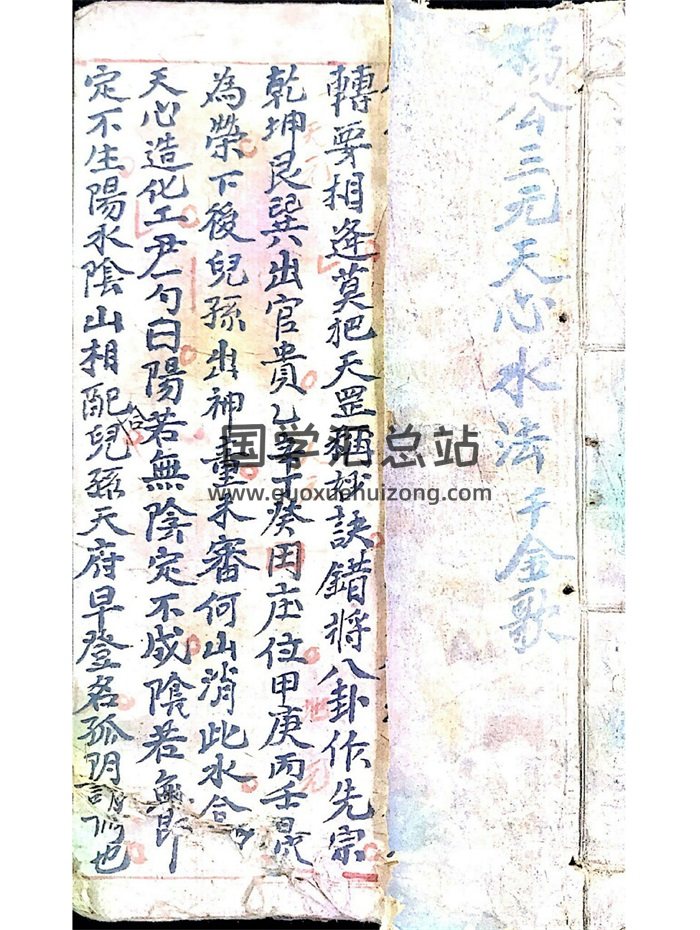 楊公三元天心水法千金歌
轉要相逢莫把天罡稱妙訣錯將八卦作先宗
乾坤艮巽出官貴乙辛丁癸田庄位甲庚丙壬是
為榮下後兒孫出神童未審何山消此水合
天心造化工尹勻曰陽若無陰定不成陰若無即
定不生陽水陰山相配合兒孫天府早登名孤阴
國学汇总站
www.guoxuehuizong.com